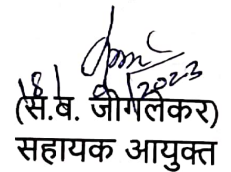 18/ /2023
(स.ब. जोगलेकर)
सहायक आयुक्त